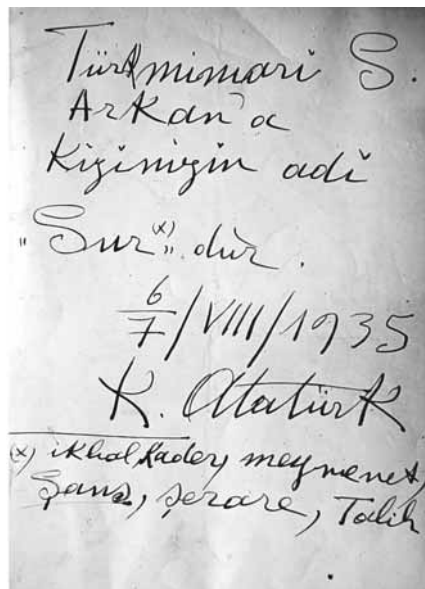 Türk mimari S.
Arkan'a
Kizinizin adi
"Sur(x)" dür.
6/7/VIII/1935
K. Atatürk
(x) ikbal, Kader, meymenet,
Şans, şerare, Talih